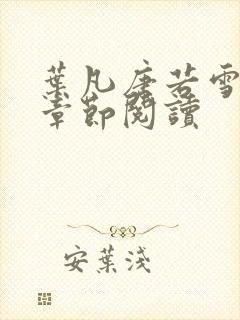 葉凡唐若雪
章節閱讀
安葉淺